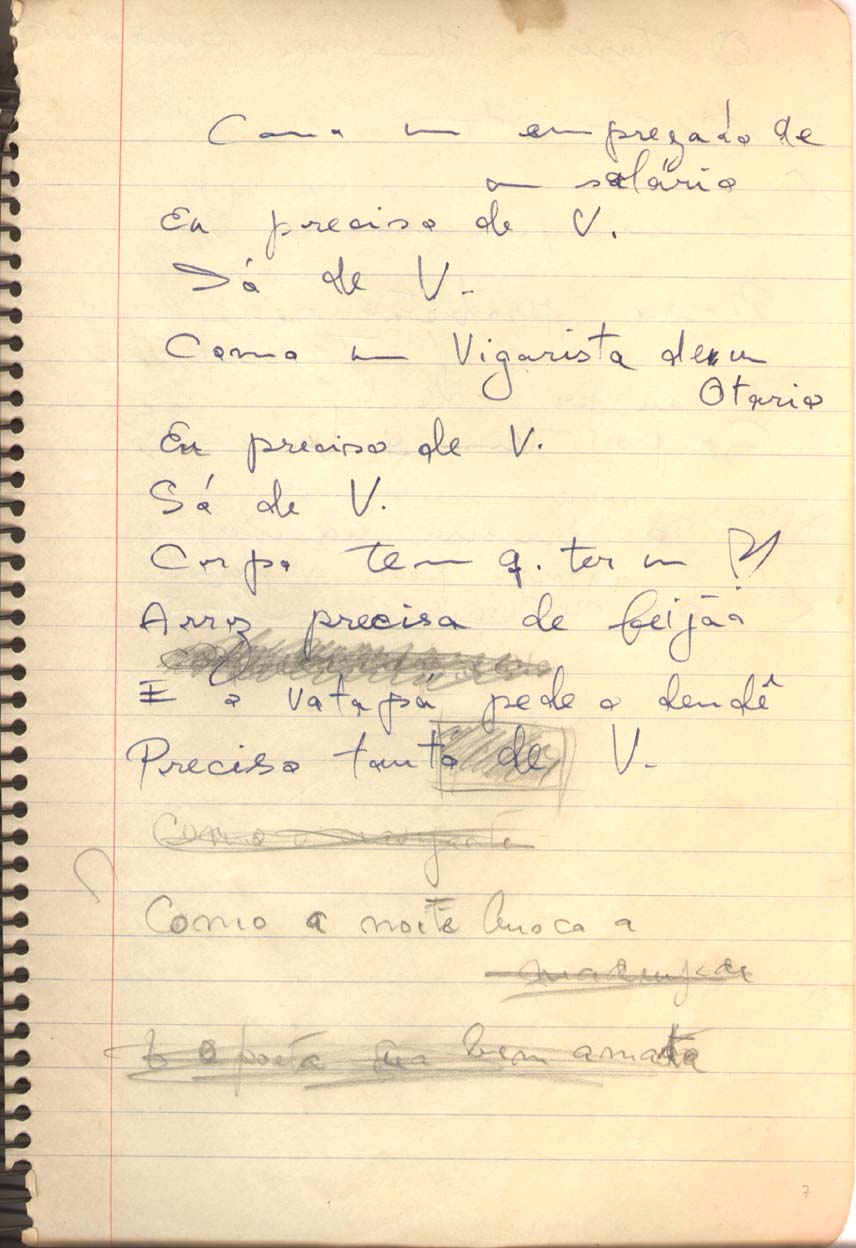 Como um empregado de
um salário
Eu preciso de V.
Só de V.
Como um Vigarista de um
Otario
Eu preciso de V.
Só de V.
Corpo tem q. ter um
Arroz precisa de feijão
E o vatapá pede o dendê
Preciso tanto de V.
Como o
Como a noite busca a
madrugada
E o poeta sua bem amada
7